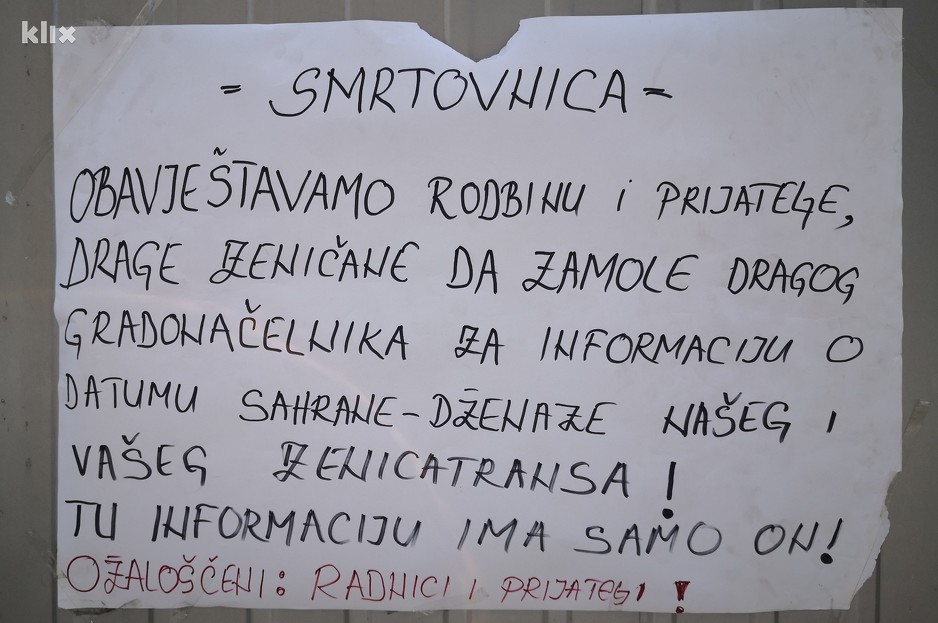 klix
= SMRTOVNICA =
OBAVJEŠTAVAMO RODBINU i PRIJATELJE,
DRAGE ZENIČANE DA ZAMOLE DRAGOG
GRADONAČELNIKA ZA INFORMACIJU O
DATUMU SAHRANE-DŽENAZE NAŠEG I
VAŠEG ZENICATRANSA!
TU INFORMACIJU IMA SAMO ON!
OŽALOŠČENI: RADNICI I PRIJATELJI!